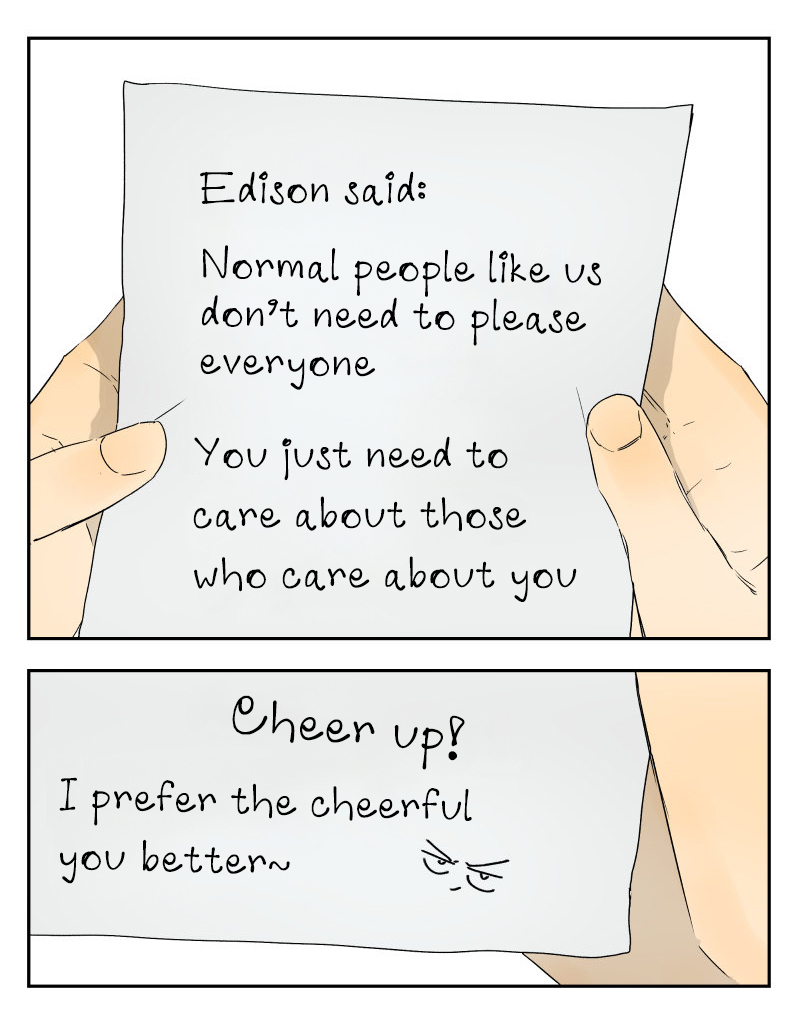 Edison said:
Normal people like us
don't need to please
everyone
You just need to
care about those
who care about you
Cheer up!
I prefer the cheerful
you better~